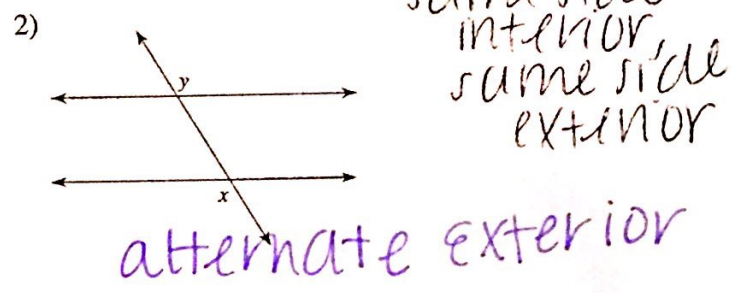 2)
interior,
same side
exterior
y
x
alternate exterior